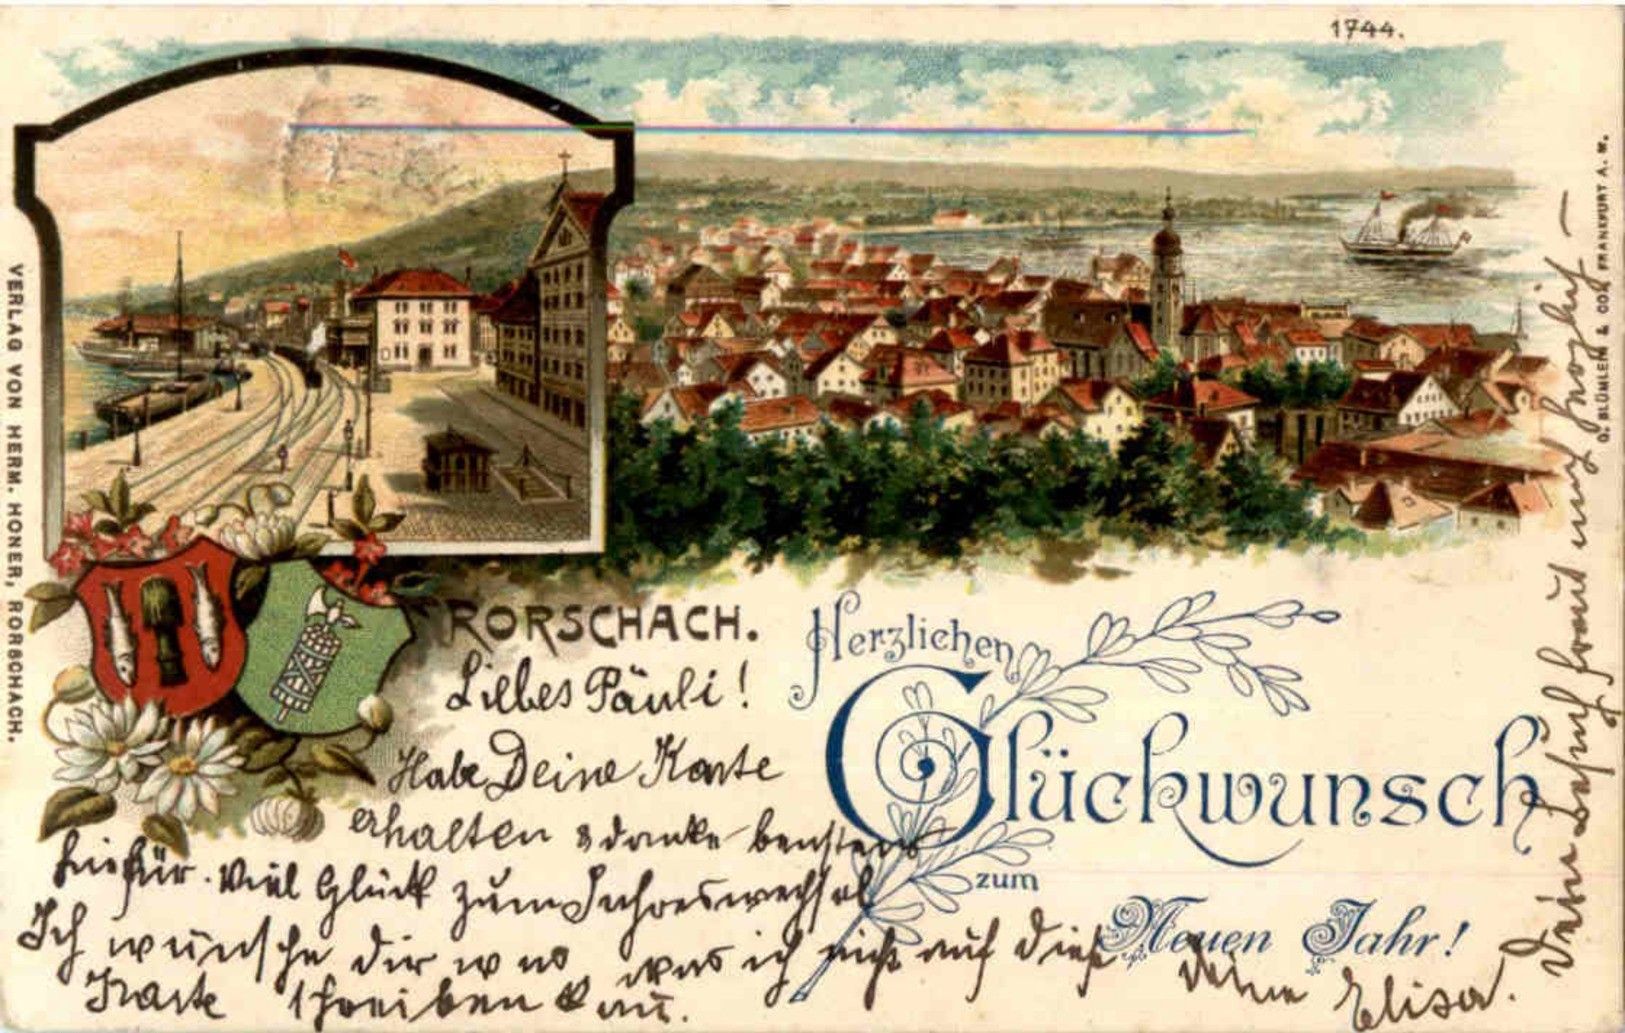 1744.
VERLAG VON HERM. HONER, RORSCHACH.
O. BLÜMLEIN & CO., FRANKFURT A. M.
RORSCHACH.
Herzlichen
Glückwunsch
zum
Neuen Jahr!
Liebes Päuli!
Habe Deine Karte
erhalten & danke bestens
hiefür. Viel Glück zum Jahreswechsel
Ich wünsche dir was ich nicht auf diese
Karte schreiben kann.
Deine Elisa.
Dein Besuch freut mich